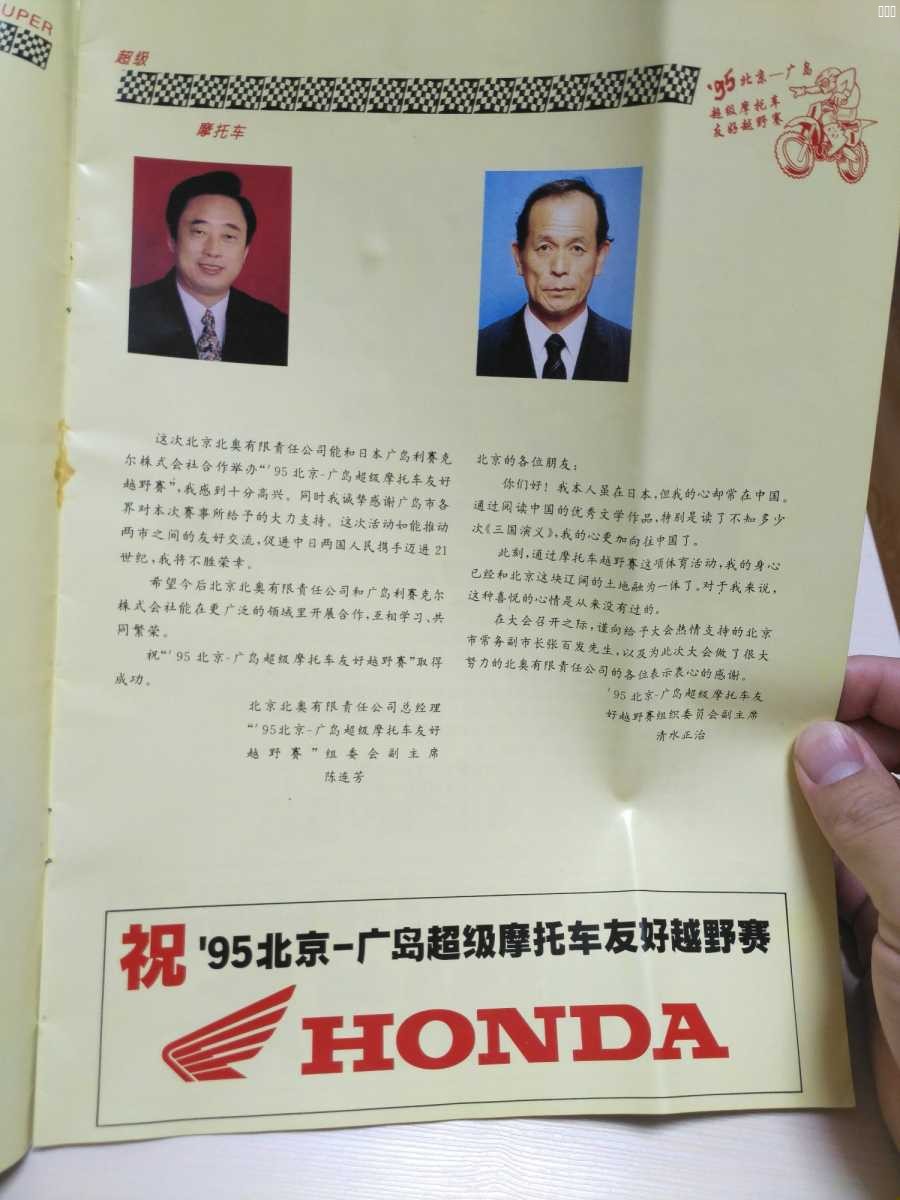 UPER
超级
摩托车
'95北京—广岛
超级摩托车
友好越野赛
这次北京北奥有限责任公司能和日本广岛利赛克
尔株式会社合作举办“'95北京-广岛超级摩托车友好
越野赛”,我感到十分高兴。同时我诚挚感谢广岛市各
界对本次赛事所给予的大力支持。这次活动如能推动
两市之间的友好交流,促进中日两国人民携手迈进21
世纪,我将不胜荣幸。
希望今后北京北奥有限责任公司和广岛利赛克尔
株式会社能在更广泛的领域里开展合作,互相学习、共
同繁荣。
祝“'95北京-广岛超级摩托车友好越野赛”取得
成功。
北京北奥有限责任公司总经理
“'95北京-广岛超级摩托车友好
越野赛”组委会副主席
陈连芳
北京的各位朋友:
你们好!我本人虽在日本,但我的心却常在中国。
通过阅读中国的优秀文学作品,特别是读了不知多少
次《三国演义》,我的心更加向往中国了。
此刻,通过摩托车越野赛这项体育活动,我的身心
已经和北京这块辽阔的土地融为一体了。对于我来说,
这种喜悦的心情是从来没有过的。
在大会召开之际,谨向给予大会热情支持的北京
市常务副市长张百发先生,以及为此次大会做了很大
努力的北奥有限责任公司的各位表示衷心的感谢。
'95北京-广岛超级摩托车友
好越野赛组织委员会副主席
清水正治
祝'95北京-广岛超级摩托车友好越野赛
HONDA